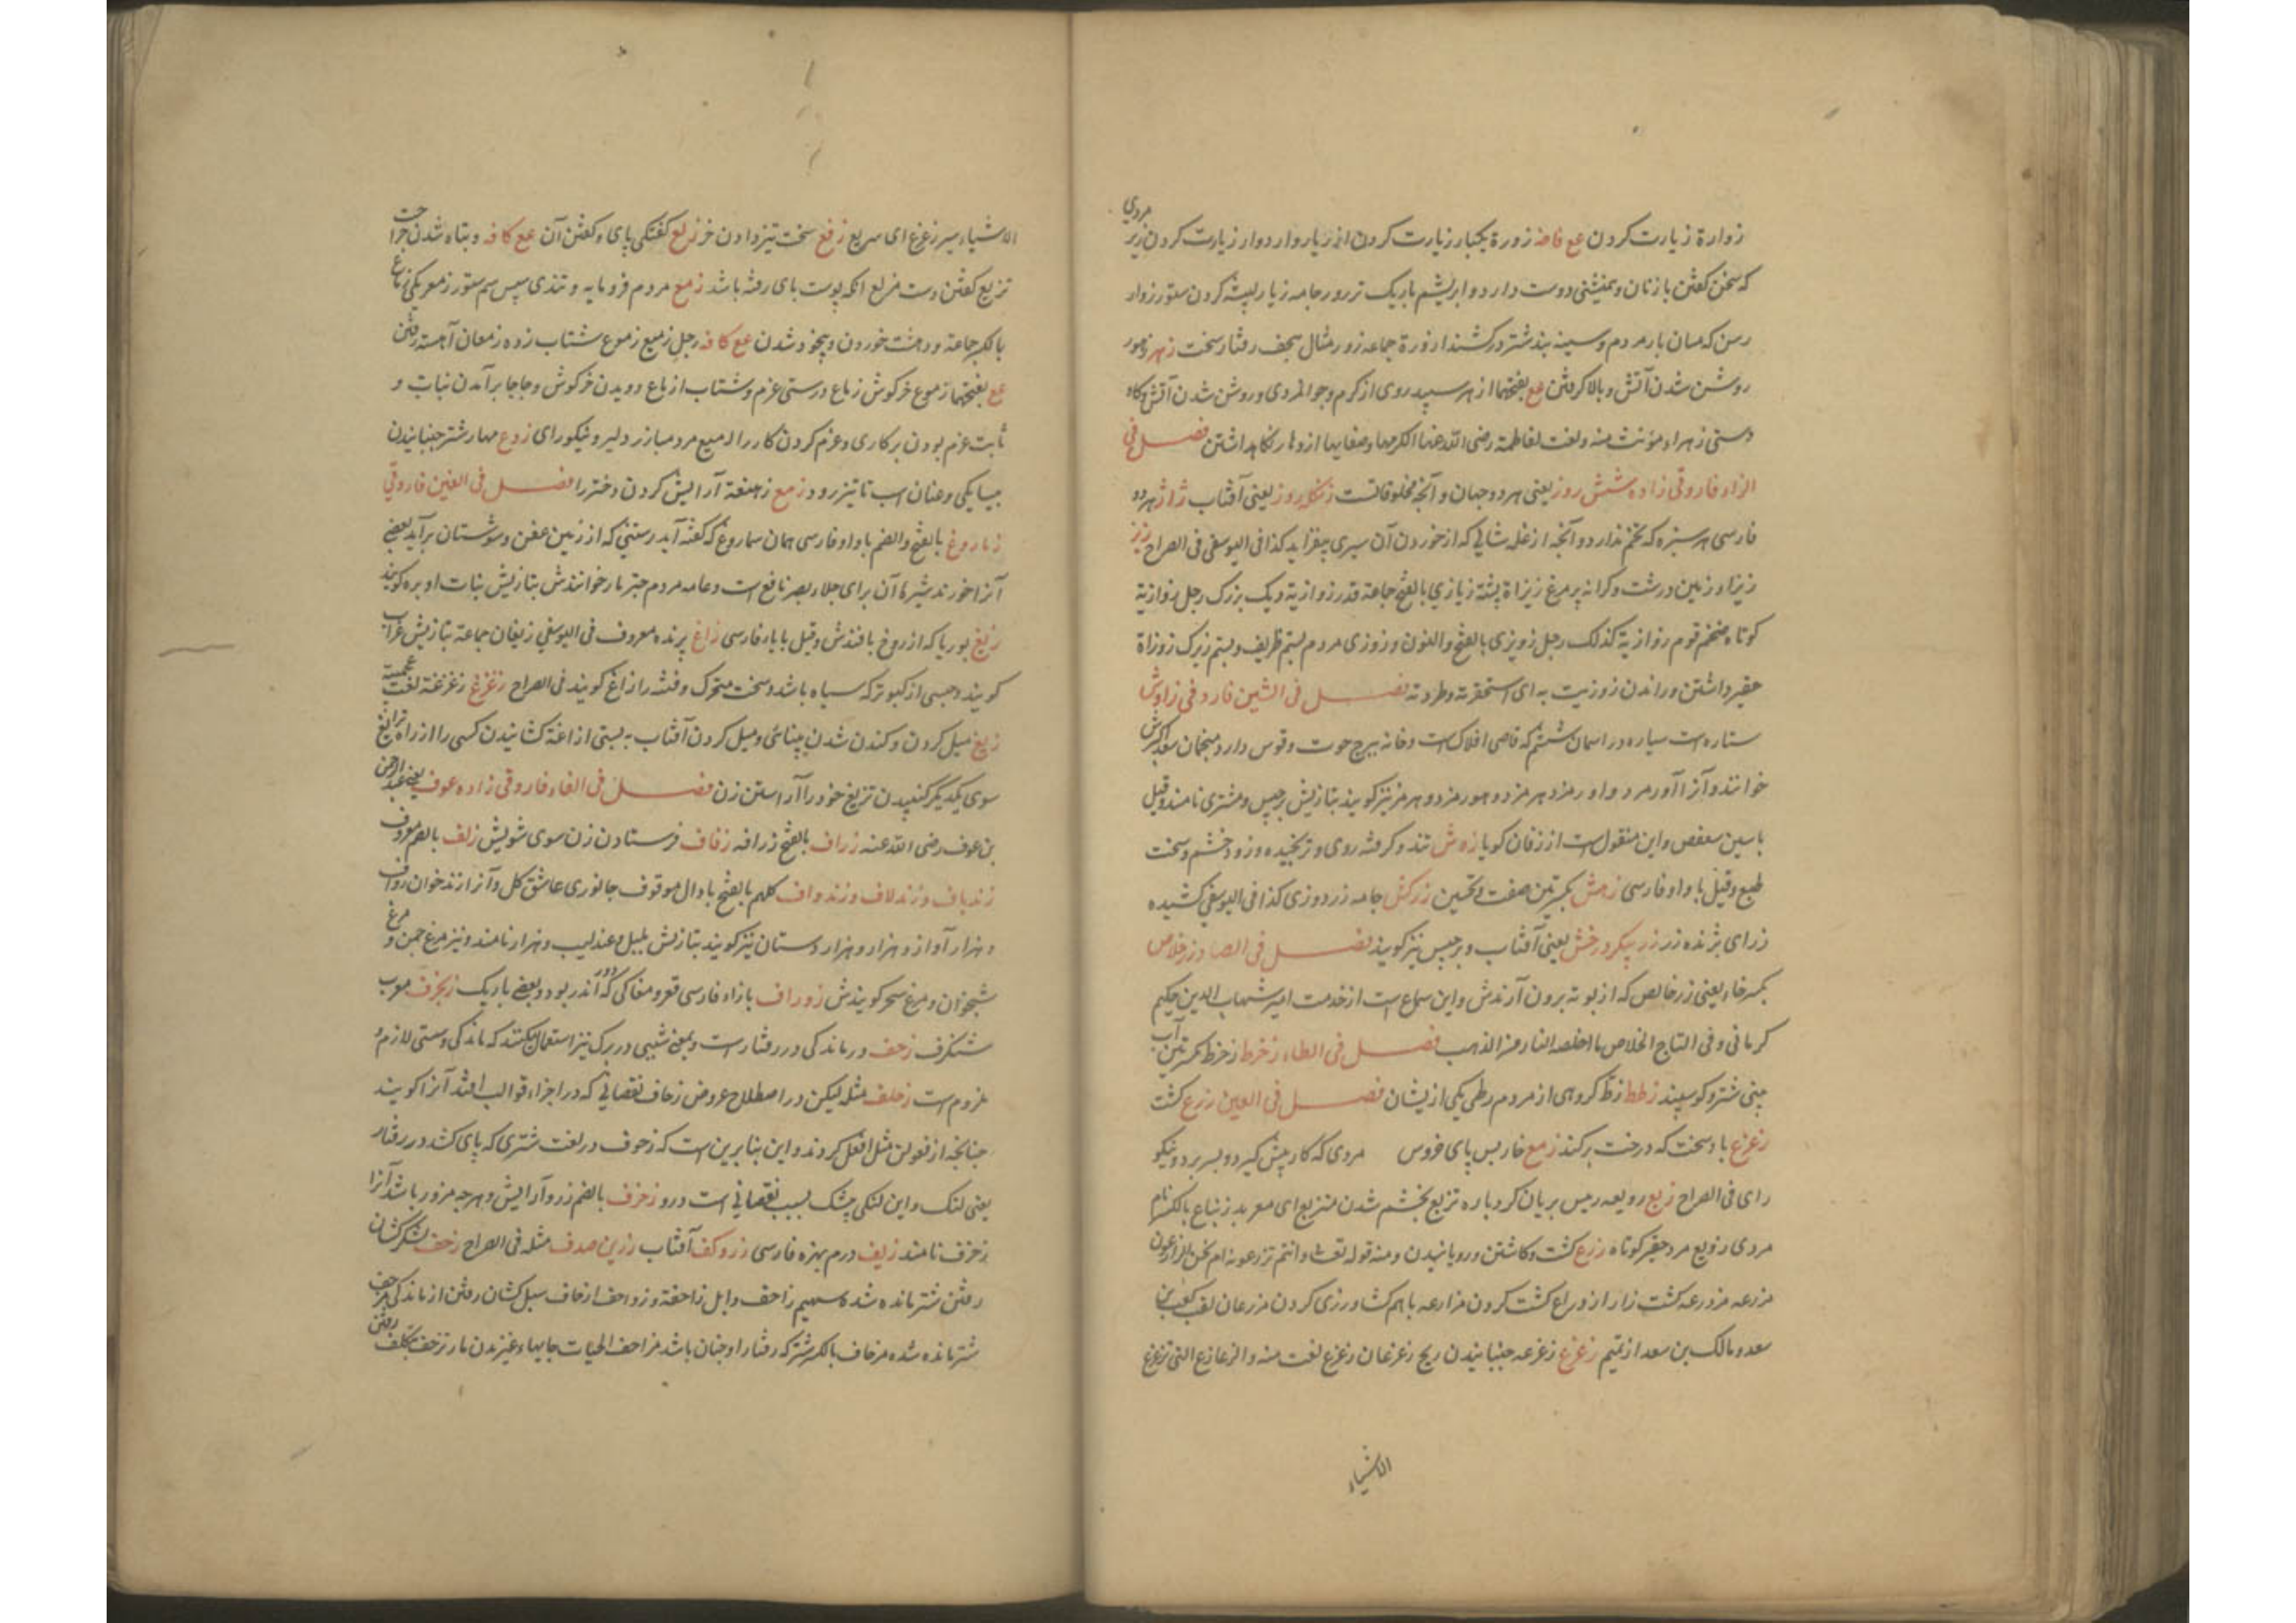 زوارة زیارت کردن عع فاضه زورة یکبار زیارت کردن ازدیار وازدوار زیارت کردن زیر مردی
که سخن گفتن با زنان و همنشینی دوست دارد و ابریشم باریک تر و رجامه زیار لبیشه کردن ستور زوار
رسن که میان بار مردم و سینه بند شتر درکشند ازورة جماعه زور مثال سجف رفتار سخت زهر زهور
روشن شدن آتش و بالا گرفتن عع بفتحها ازهر سپید روی از کرم و جوانمردی و روشن شدن آتش و گاه
دستی زهراء مؤنث منه و لغت لفاطمة رضی الله عنها اکرمها و صفایها ازدهار نگاه داشتن فصل فی
الزاء فاروقی زاده شش روز یعنی هر دو جهان و آنچه مخلوقاتست زنگله روز یعنی آفتاب ژاژ هر دو
فارسی هر سبزه که تخم ندارد و آنچه از غله شالی که از خوردن آن سیری بیفزاید کذا فی الیوسفی فی الصراح زیز
زیزاء زمین درشت و کرانه پر مرغ زیزاة پشته زیازی بالفتح جماعة قدر زوازیة دیک بزرگ رجل زوازیة
کوتاه ضخم قوم زوازیة کذلک رجل زویزی بالفتح والنون وزوزی مردم بستم ظریف و بستم زیرک زوزاة
حقیر داشتن و راندن زوزیت به ای استحقرته و طردته فصل فی الشین فاروقی زاوش
ستاره است سیاره در آسمان ششم که قاضی افلاک است و خانه ببرج حوت و قوس دارد منجمان سعد اکبرش
خوانند و آنرا آورمرد و اورمزد هرمزد و هورمزد و هرمز نیز گویند بتازیش برجیس و مشتری نامند و قیل
با سین سعفص و این منقول است از زفان گویا زوش تند و گرفته روی و ترنجیده و زود خشم و سخت
طبع و قیل با واو فارسی زمش بکسرتین صفت تحسین زرکش جامه زردوزی کذا فی الیوسفی کشیده
زر ای برنده زر زر پیکر و رخش یعنی آفتاب و برجیس نیز گویند فصل فی الصاد زر خلاص
بکسر خاء یعنی زر خالص که از بوته برون آرندش و این سماع است از خدمت امیر شهاب الدین حکیم
کرمانی و فی التاج الخلاص ما اخلصه النار من الذهب فصل فی الطاء زخرط زخرط بکسرتین آب
بینی شتر و گوسپند زطط زط گروهی از مردم زطی یکی از ایشان فصل فی العین زرع کشت
زعزع باد سخت که درخت برکند زمع خار پس پای خروس مردی که کار پیش گیرد و بسر برد و نیکو
رای فی الصراح زبع زوبعه رمیس بریان گردباده تزبع بخشم شدن متزبع ای معربد زنباع بالکسر نام
مردی زوبع مرد حقیر کوتاه زرع کشت و کاشتن و رویانیدن و منه قوله تعالی وانتم تزرعونه ام نحن الزارعون
مزرعه مزروعه کشت زار ازدراع کشت کردن مزارعه باهم کشاورزی کردن مزرعان لقب کعب بن
سعد و مالک بن سعد از تمیم زعزع زعزعه جنبانیدن ریح زعزعان زعزع لغت منه والزعازع التی تزعزع
الاشیاء
الاشیاء سیر زعزع ای سریع زفع سخت تیز دادن خر زلع کفتگی پای و کفتن آن عع کافه و تباه شدن جراحت
تزلیع کفتن دست مزلع آنکه پوست پای رفته باشد زمع مردم فرومایه و تندی سپس سم ستور زمعر یکی زماع
بالکسر جماعة و دهشت خوردن و بیخود شدن عع کافه رجل زمیع زموع شتاب زده زمعان آهسته رفتن
عع بفتحها زموع خرگوش زماع درستی عزم و شتاب ازماع دویدن خرگوش و جاجا برآمدن نبات و
ثابت عزم بودن بر کاری و عزم کردن کار را المیع مرد مبارز دلیر و نیکورای زوع مهار شتر جنبانیدن
بسایکی و عنان اسب تا تیز رود زمع زهنعة آرایش کردن دختر را فصل فی الغین فاروقی
زماروغ بالفتح والضم با واو فارسی همان سماروغ که گفته آید رستنی که از زمین عفن و شوستان برآید بعضی
آنرا خورند شیره آن برای جلاء بصر نافع است و عامه مردم چتر مار خوانندش بتازیش نبات اوبره گویند
زیغ بوریا که از روخ بافندش و قیل با باء فارسی زاغ پرنده معروف فی الیوسفی زیغان جماعة بتازیش غراب
گویند و جنسی از کبوتر که سیاه باشد و سخت متحرک و فتنه را زاغ گویند فی الصراح زغزغ زغزغة لغت عجمیة
زیغ میل کردن و کندن شدن بینائی و میل کردن آفتاب به پستی ازاغة کشانیدن کسی را از راه تزایغ
سوی یکدیگر کنیدن تزیغ خود را آراستن زن فصل فی الفاء فاروقی زاده عوف یعنی عبدالرحمن
بن عوف رضی الله عنه زراف بالفتح زرافه زفاف فرستادن زن سوی شویش زلف بالضم معروف
زندباف و زندلاف و زندواف کلهم بالفتح با دال موقوف جانوری عاشق گل و آنرا زندخوان زواف
و هزار آواز و هزار و هزار دستان نیز گویند بتازش بلبل و عندلیب و هزار نامند و نیز مرغ چمن و مرغ
شبخوان و مرغ سحر گویندش زوراف با زاء فارسی قعر و مغاکی که آندر بود و بعضی باریک زنجرف معرب
شنگرف زحف درماندگی در رفتار است و بمعنی شیبی در برگ نیز استعمال کنند که ماندگی و سستی لازم و
ملزوم است زحلف مثله لیکن در اصطلاح عروض زحاف نقصانی که در اجزاء قوالب افتد آنرا گویند
چنانچه از فعولن مثل افعل کردند و این بنا برین است که زحوف در لغت شتری که پای کشد در رفتار
یعنی لنگ و این لنگی بیشک بسبب نقصانی است در و زخرف بالضم زر و آرایش و هرچه مزور باشد آنرا
زخرف نامند زیف درم بهره فارسی زر و کف آفتاب زرین صدف مثله فی الصراح زحف لشکر کشان
رفتن شتر مانده شده سهیم زاحف و ابل زاحفة و زواحف ازحاف سیل کشان رفتن از ماندگی مزحف
شتر مانده شده مزحاف بالکسر شتر که رفتار او چنان باشد مزاحف الحیات جایهاء غیزیدن مار تزحف بتکلف رفتن